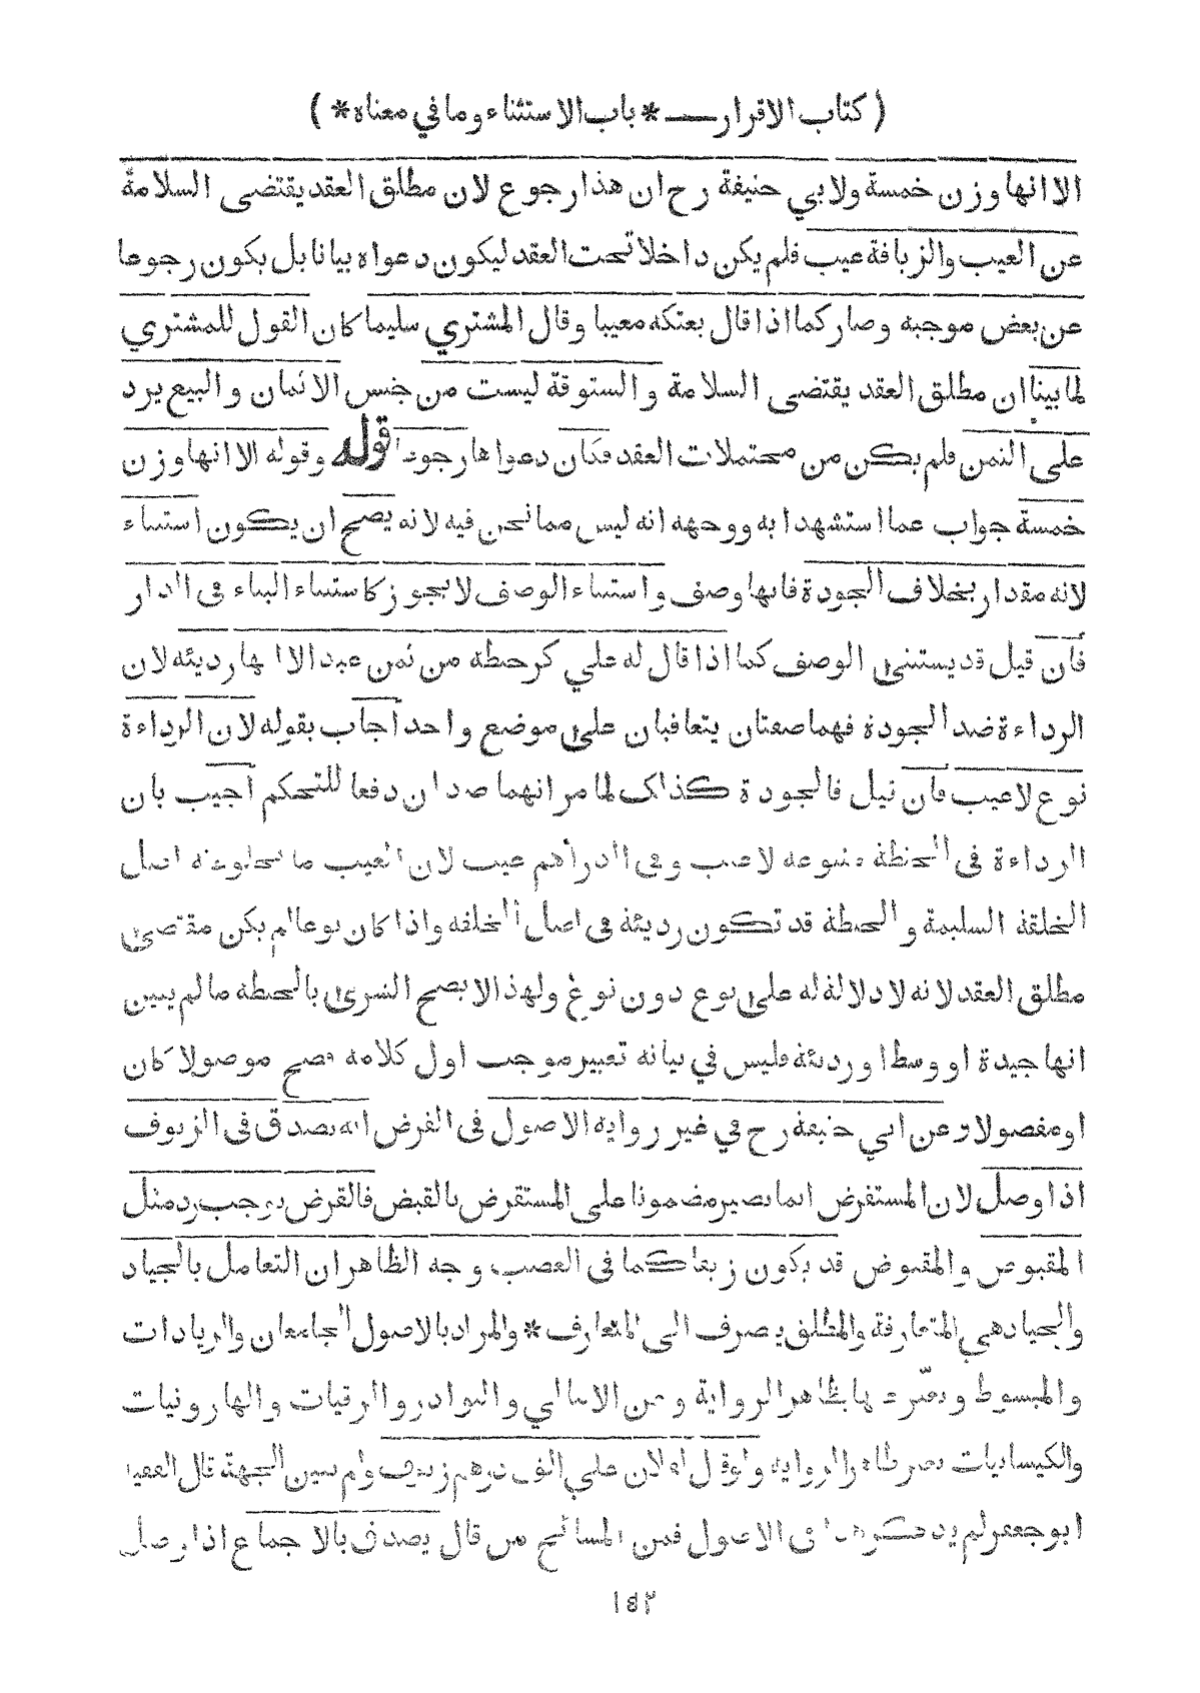 ( كتاب الاقرار — * باب الاستثناء وما في معناه * )
الا انها وزن خمسة ولابي حنيفة رح ان هذا رجوع لان مطلق العقد يقتضى السلامة
عن العيب والزيافة عيب فلم يكن داخلا تحت العقد ليكون دعواه بيانا بل يكون رجوعا
عن بعض موجبه وصار كما اذا قال بعتكه معيبا وقال المشتري سليما كان القول للمشتري
لما بينا ان مطلق العقد يقتضى السلامة والستوقة ليست من جنس الاثمان والبيع يرد
على الثمن فلم يكن من محتملات العقد فكان دعواها رجوعا قوله وقوله الا انها وزن
خمسة جواب عما استشهدا به ووجهه انه ليس مما نحن فيه لانه يصح ان يكون استثناء
لانه مقدار بخلاف الجودة فانها وصف واستثناء الوصف لا يجوز كاستثناء البناء فى الدار
فان قيل قد يستثنى الوصف كما اذا قال له علي كر حنطة من ثمن عبد الا انها رديئه لان
الرداءة ضد الجودة فهما صفتان يتعاقبان على موضع واحد أجاب بقوله لان الرداءة
نوع لا عيب فان قيل فالجودة كذلك لما مر انهما ضدان دفعا للتحكم أجيب بان
الرداءة فى الحنطة منوعه لا عيب وفى الدراهم عيب لان العيب ما يخلو عنه اصل
الخلقة السليمة والحنطة قد تكون رديئة فى اصل الخلقه واذا كان نوعا لم يكن مقتضى
مطلق العقد لانه لا دلالة له على نوع دون نوع ولهذا لا يصح الشرى بالحنطه ما لم يبين
انها جيدة او وسط او رديئة فليس في بيانه تغيير موجب اول كلامه فصح موصولا كان
او مفصولا وعن ابي حنيفة رح في غير رواية الاصول فى القرض انه يصدق فى الزيوف
اذا وصل لان المستقرض انما يصير مضمونا على المستقرض بالقبض فالقرض يوجب رد مثل
المقبوض والمقبوض قد يكون زيفا كما فى الغصب وجه الظاهر ان التعامل بالجياد
والجياد هي المتعارفة والمطلق يصرف الى المتعارف * والمراد بالاصول الجامعان والزيادات
والمبسوط ويعبر عنها بظاهر الرواية وعن الامالي والنوادر والرقيات والهارونيات
والكيسانيات بغير ظاهر الرواية ولو قال لفلان علي الف درهم زيوف ولم يبين الجهة قال الفقيه
ابو جعفر لم يذكر هذا فى الاصول فمن المشائخ من قال يصدق بالاجماع اذا وصل
١٤٢